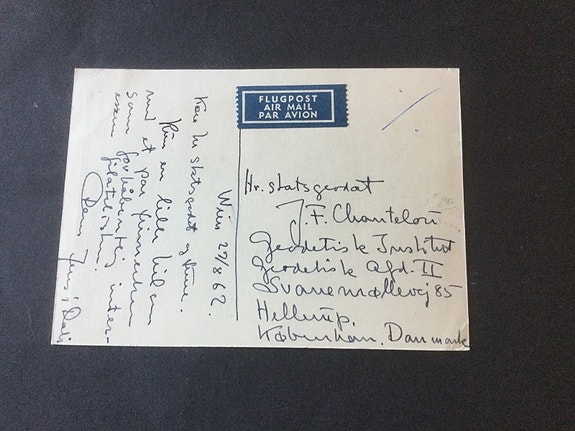 FLUGPOST
AIR MAIL
PAR AVION
Wien 27/8 62.
Kære Hr statsgeodæt og frue.
Kun en lille hilsen
med et par frimærker
som forhåbentlig inter-
essen filatelistisk!
Deres
Hr. statsgeodæt
J.F. Chantelou
Geodætisk Institut
Geodætisk Afd. II
Svanemøllevej 85
Hellerup.
København. Danmark